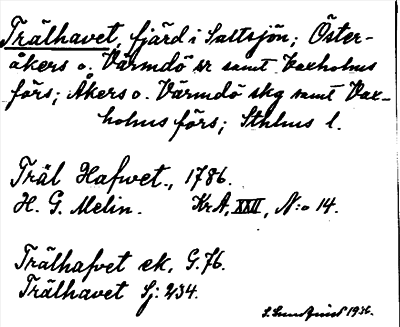 Trälhavet, fjärd i Saltsjön; Öster-
åkers o. Värmdö sr samt Vaxholms
förs; Åkers o. Värmdö skg samt Vax-
holms förs; Sthlms l.
Träl Hafwet., 1786.
H. G. Melin. KrA, XXII, N:o 14.
Trälhafvet ek, G. 76.
Trälhavet Sj: 234.
S. 1936.